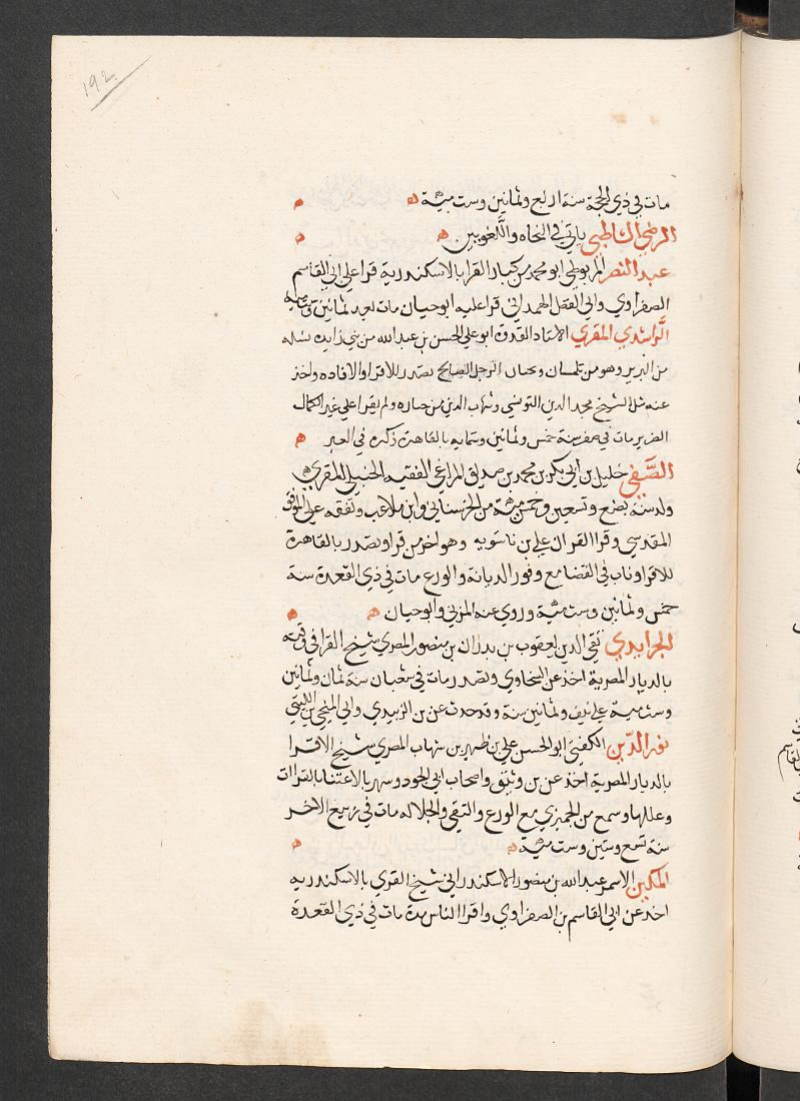 192
مات في ذي الحجة سنة اربع وثمانين وست مئة ه
الرضي الشاطبي ياتي في النحاه واللغويين ه
عبد النصر المريوطي ابو محمد من كبار القرا بالاسكندرية قرا علي ابي القاسم
الصفراوي وابي الفضل الهمداني قرا عليه ابو حيان مات بعد ثمانين وستماية
الراشدي المقري الاستاد القدوة ابو علي الحسن بن عبد الله من بني راشد قبيله
من البربر وهو من تلمسان وكان الرجل الصالح تصدر للاقرا والافاده واخذ
عنه مثل الشيخ مجد الدين التونسي وشهاب الدين من جباره ولم يقرا علي غير الكمال
الضرير مات في صفر سنة خمس وثمانين وستمايه بالقاهرة ذكره في العبر ه
الصفي خليل بن ابي بكر بن محمد بن صديق المراغي الفقيه الحنبلي المقري
ولد سنة بضع وتسعين وخمس مئة من الحرستاني وابن ملاعب وتفقه علي الموفق
المقدسي وقرا القران علي بن ناسويه وهو اخر من قرا وتصدر بالقاهرة
للاقرا وناب في القضا مع وفور الديانة والورع مات في ذي القعدة سنة
خمس وثمانين وست مئة وروي عنه المزني وابو حيان ه
الجرايدي تقي الدين يعقوب بن بدران بن منصور المصري شيخ القرا في وقته
بالديار المصرية اخذ عن السخاوي وتصدر مات في شعبان سنة ثمان وثمانين
وست مية علي نيف وثمانين سنة وقد حدث عن بن الزبيدي وابي المنجي بن اللتي
نور الدين الكفتي ابو الحسن علي بن ظهير بن شهاب المصري شيخ الاقرا
بالديار المصرية اخذ عن بن وثيق واصحاب ابي الجود وشهر بالاعتنا بالقراات
وعللها وسمع من الجميزي مع الورع والتقي والجلاله مات في ربيع الاخر
سنة تسع وستين وست مئة ه
المكين الاسمر عبد الله بن منصور الاسكندراني شيخ القري بالاسكندريه
اخذ عن ابي القاسم بن الصفراوي واقرا الناس مدة مات في ذي القعدة